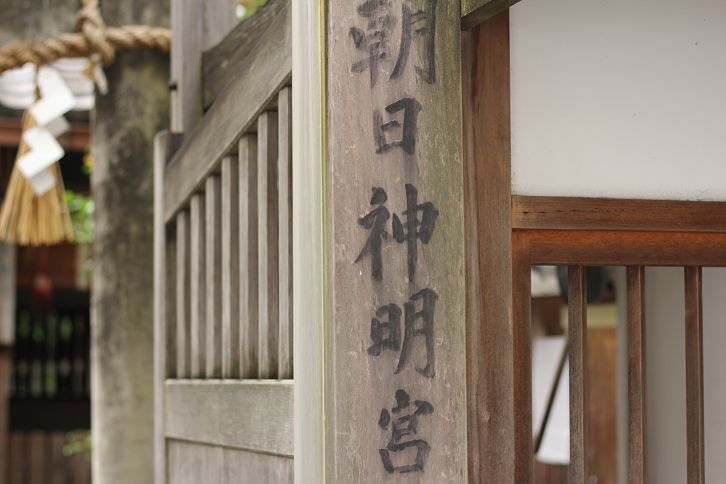 朝日神明宮